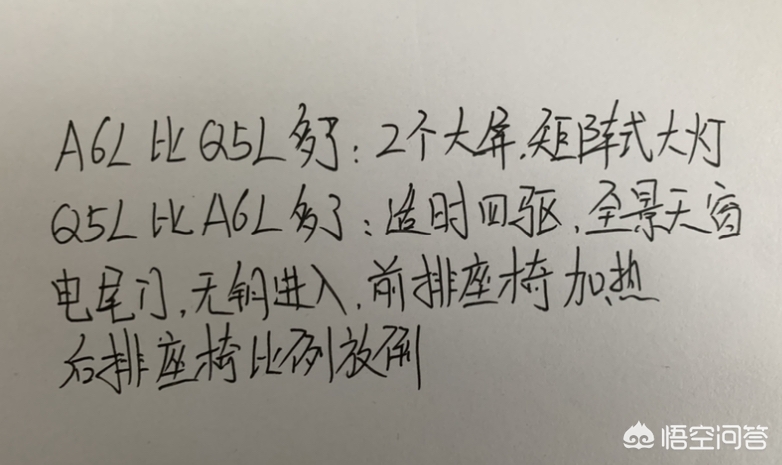 A6L比Q5L多了:2个大屏,矩阵式大灯
Q5L比A6L多了:适时四驱,全景天窗
电尾门,无钥进入,前排座椅加热
后排座椅比例放倒
悟空问答